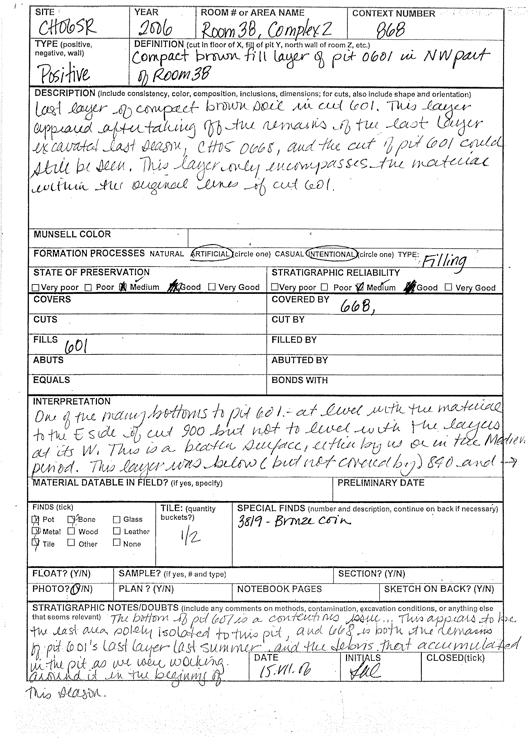 SITE YEAR ROOM # or AREA NAME CONTEXT NUMBER
CH06SR 2006 Room 38, Complex 2 868
TYPE (positive, negative, wall) DEFINITION (cut in floor of X, fill of pit Y, north wall of room Z, etc.)
Positive
Compact brown fill layer of pit 0601 in NW part
of Room 38
DESCRIPTION (include consistency, color, composition, inclusions, dimensions; for cuts, also include shape and orientation)
Last layer of compact brown soil in cut 601. This layer
appeared after taking off the remains of the last layer
excavated last season, CH05 0668, and the cut of pit 601 could
still be seen. This layer only encompasses the material
within the original lines of cut 601.
MUNSELL COLOR
FORMATION PROCESSES NATURAL ARTIFICIAL (circle one) CASUAL INTENTIONAL (circle one) TYPE: Filling
STATE OF PRESERVATION STRATIGRAPHIC RELIABILITY
Very poor Poor Medium Good Very Good Very poor Poor Medium Good Very Good
COVERS COVERED BY 668,
CUTS CUT BY
FILLS 601 FILLED BY
ABUTS ABUTTED BY
EQUALS BONDS WITH
INTERPRETATION
One of the many bottoms to pit 601 - at level with the material
to the E side of cut 900 but not to level with the layers
at its W. This is a beaten surface, either by us or in the Mediev.
period. This layer was below (but not covered by) 840 and →
MATERIAL DATABLE IN FIELD? (if yes, specify) PRELIMINARY DATE
FINDS (tick) TILE: (quantity buckets?) SPECIAL FINDS (number and description, continue on back if necessary)
Pot Bone Glass
Metal Wood Leather
Tile Other None
1/2
3819 - Bronze coin
FLOAT? (Y/N) SAMPLE? (if yes, # and type) SECTION? (Y/N)
PHOTO? (Y/N) PLAN ? (Y/N) NOTEBOOK PAGES SKETCH ON BACK? (Y/N)
STRATIGRAPHIC NOTES/DOUBTS (include any comments on methods, contamination, excavation conditions, or anything else
that seems relevant) The bottom of pit 601 is a contentious issue... This appears to be
the last area solely isolated to this pit, and 668 is both the remains
of pit 601's last layer last summer, and the debris that accumulated
in the pit as we were working
around it in the beginning of
this season.
DATE INITIALS CLOSED(tick)
15.VII.06